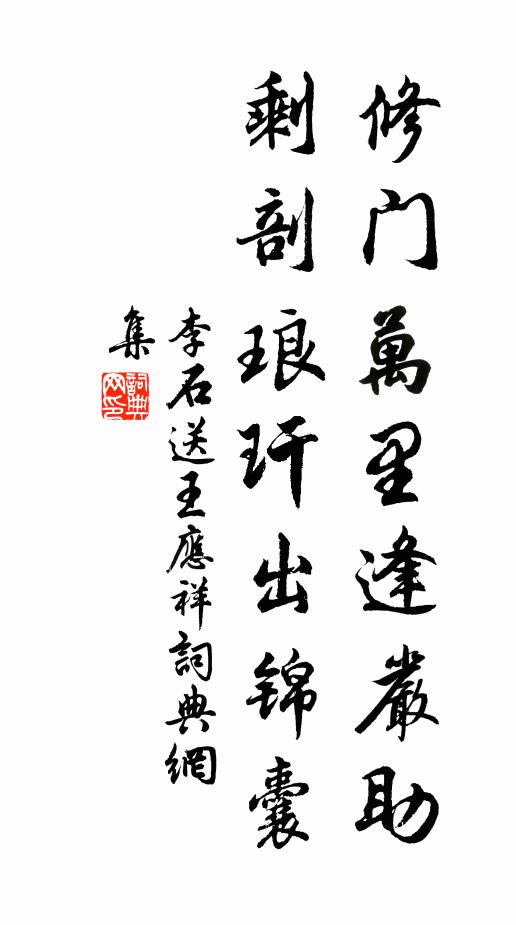 修门萬里逢嚴助
剩剖琅玕出锦囊
李石送王應祥詞典網
集
詞典
网印